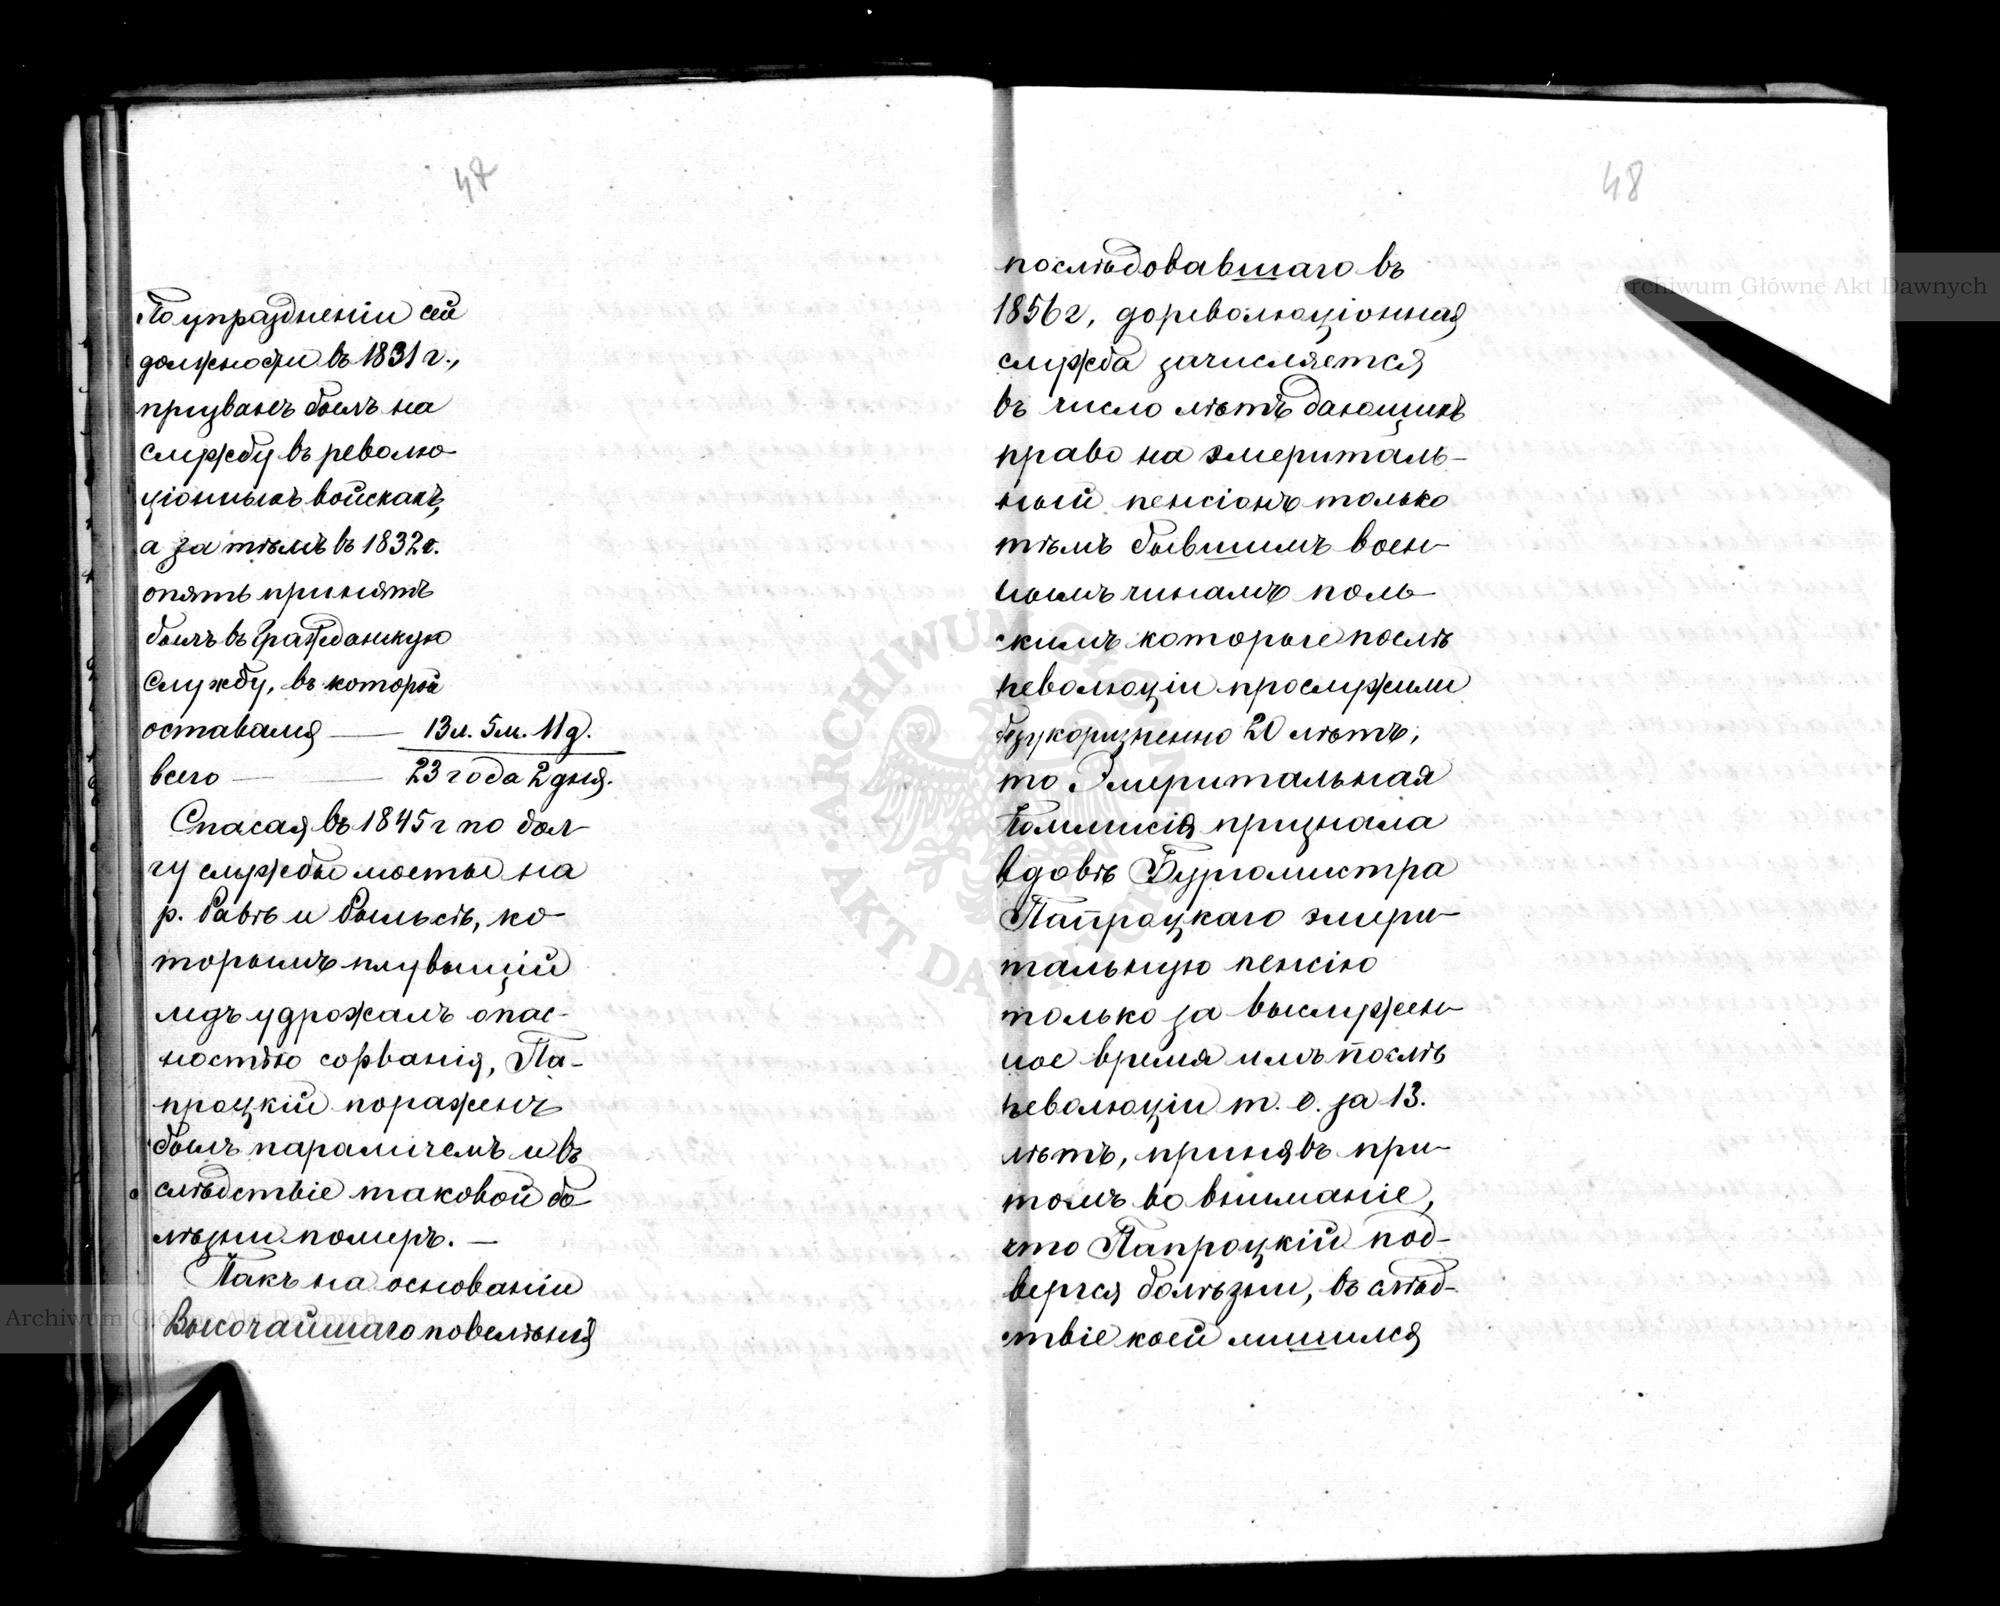 47
По упраздненіи сей
должности въ 1831 г.,
призванъ былъ на
службу въ револю-
ціонныхъ войскахъ,
а за тѣмъ въ 1832 г.
опять принятъ
былъ въ гражданскую
службу, въ которой
оставался — 13 л. 5 м. 11 д.
всего — — 23 года 2 дня.
Спасая въ 1845 г по дол-
гу службы мосты на
р. Равѣ и Рыльсѣ, ко-
торымъ плувыщій
ледъ удрожалъ опас-
ностью сорванія, Па-
процкій пораженъ
былъ параличемъ и въ
слѣдствіе таковой бо-
лѣзни померъ. —
Такъ на основаніи
Высочайшаго повелѣнія
48
послѣдовавшаго въ
1856 г, дореволюціонная
служба зачисляется
въ число лѣтъ дающихъ
право на эмериталь-
ный пенсіонъ только
тѣмъ бывшимъ воен-
нымъ чинамъ поль-
скимъ которые послѣ
революціи прослужили
безукоризненно 20 лѣтъ,
то Эмеритальная
Коммисія признала
вдовѣ Бургомистра
Папроцкаго эмери-
тальную пенсію
только за выслужен-
ное время имъ послѣ
революціи т. е. за 13.
лѣтъ, принявъ при-
томъ во вниманіе,
что Папроцкій под-
вергся болѣзни, въ слѣд-
ствіе коей лишился
Archiwum Główne Akt Dawnych
Archiwum Główne Akt Dawnych
ARCHIWUM GŁÓWNE AKT DAWNYCH